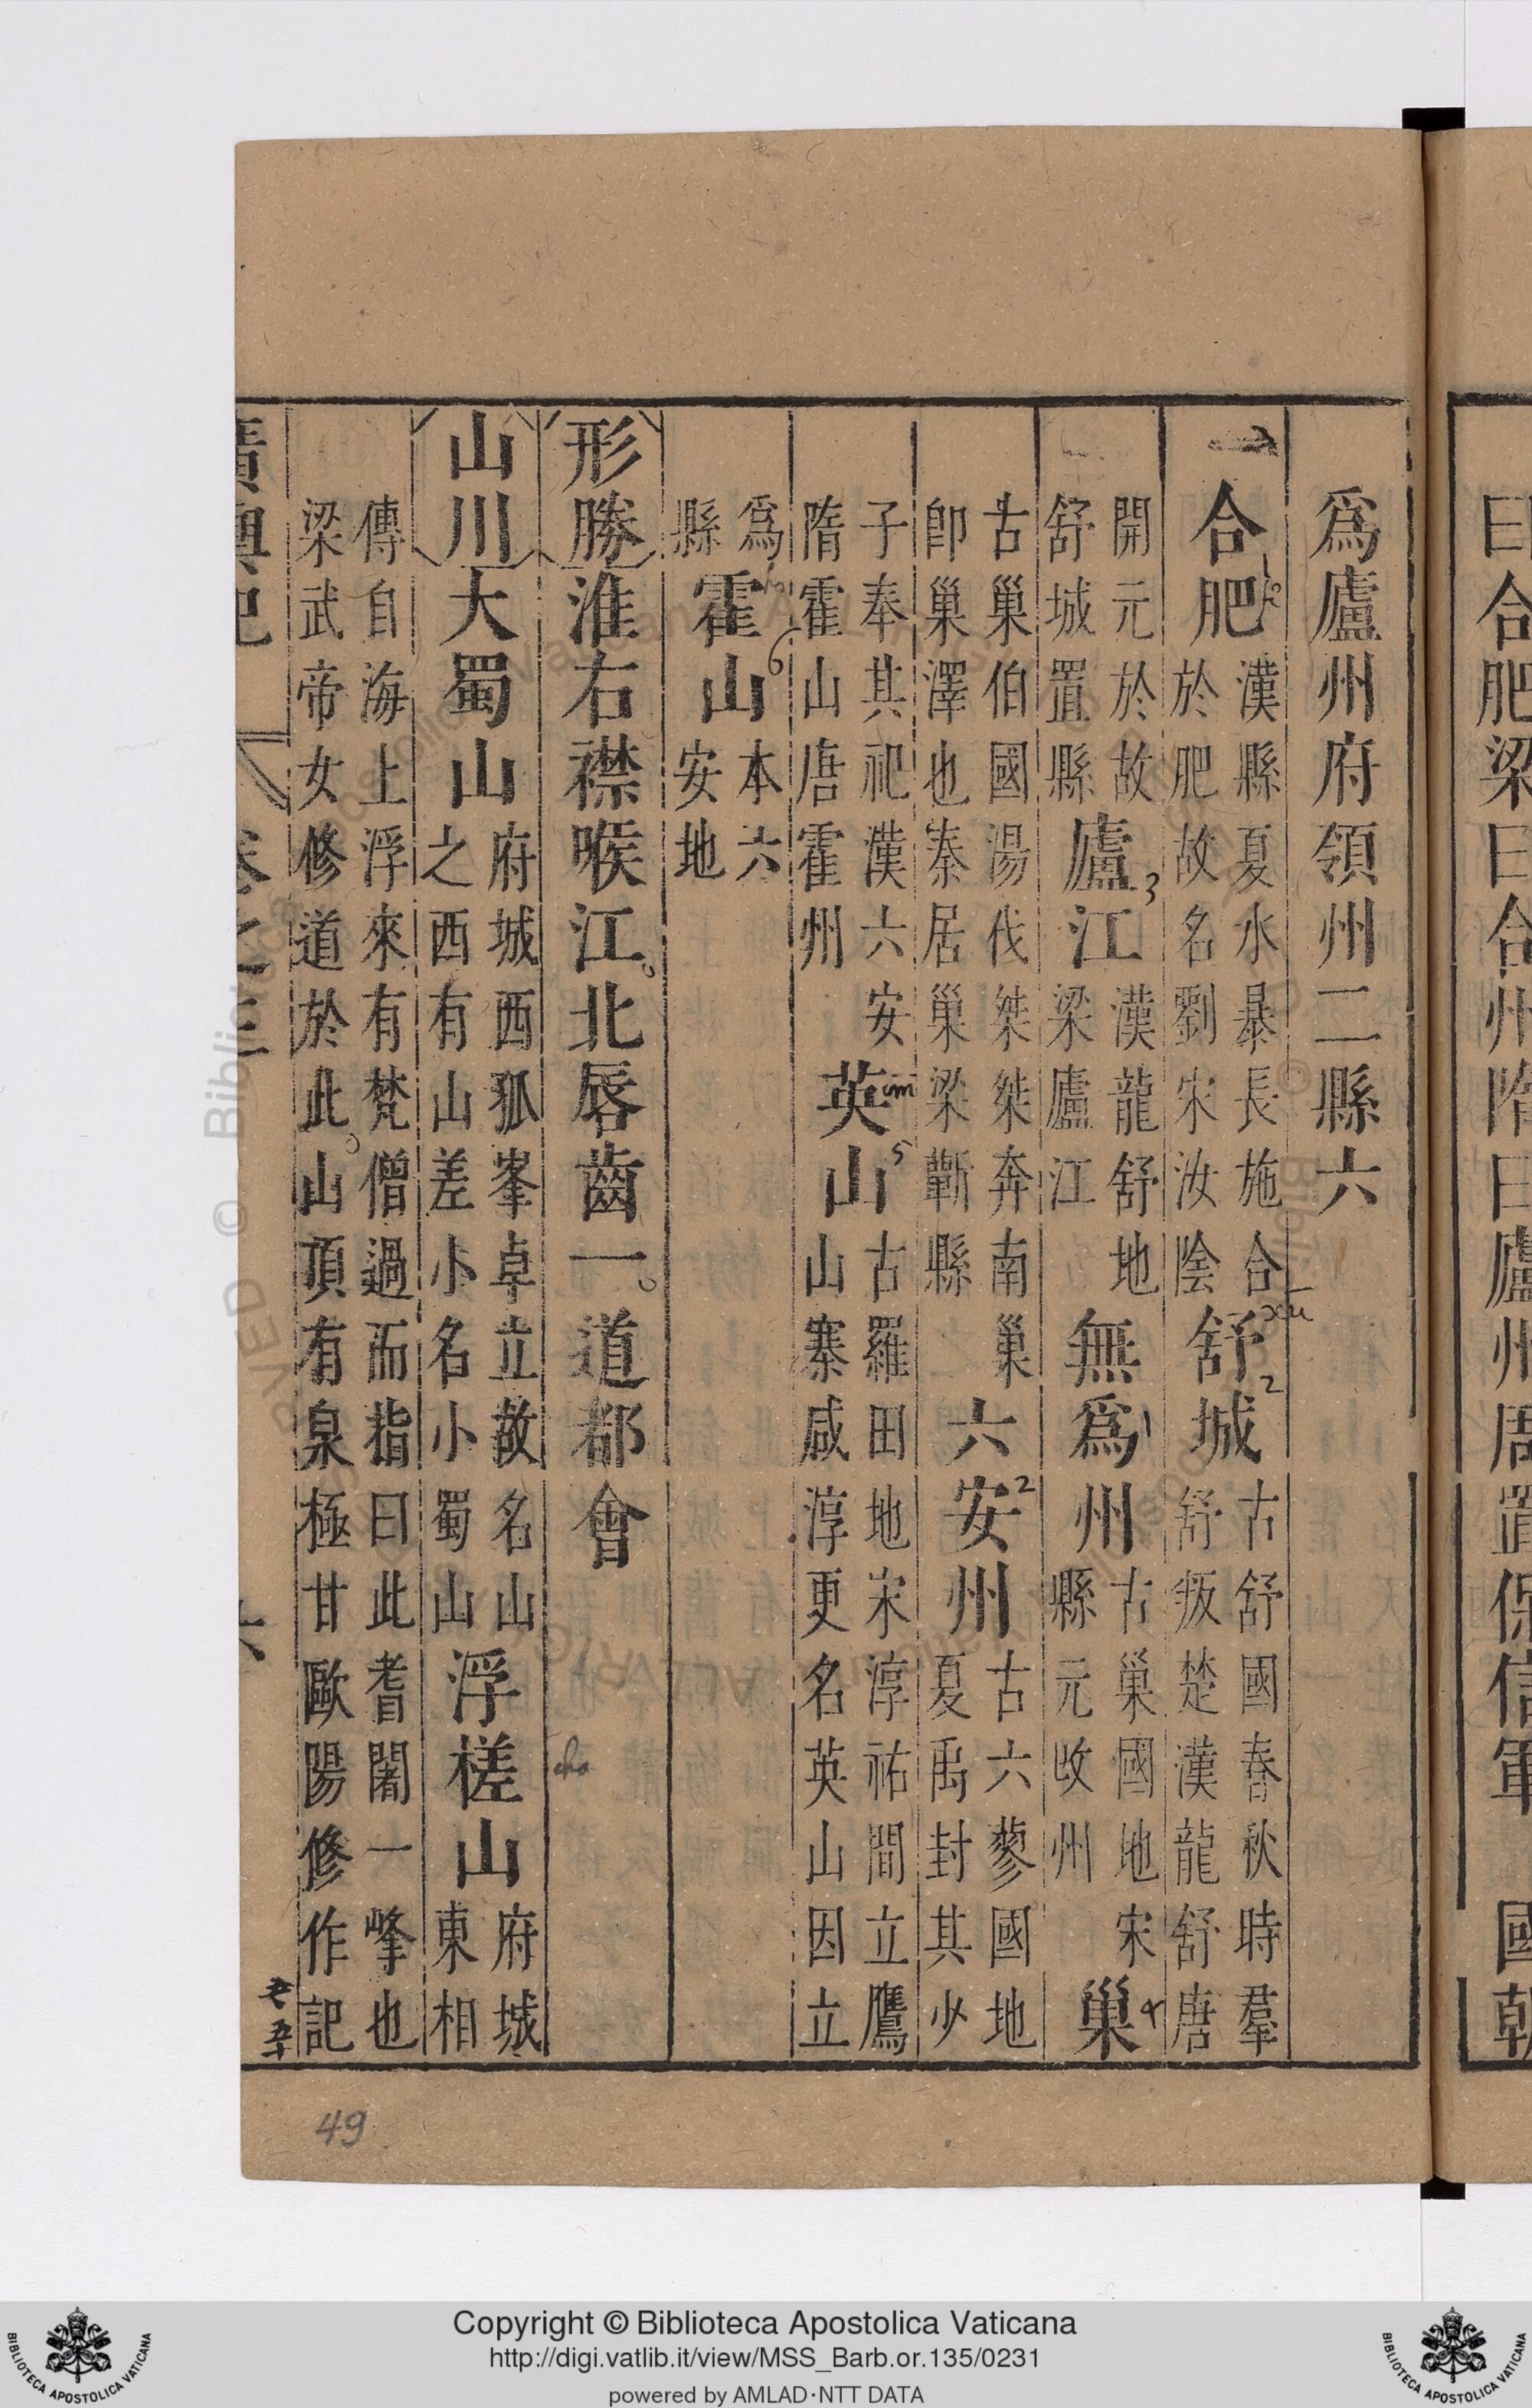 爲廬州府領州二縣六
合肥漢縣夏水暴長施合於肥故名劉宋汝陰舒城古舒國春秋時羣舒叛楚漢龍舒唐
開元於故舒城置縣廬江漢龍舒地梁廬江無爲州古巢國地宋縣元改州巢
古巢伯國湯伐桀桀奔南巢卽巢澤也秦居巢梁蘄縣六安州古六蓼國地夏禹封其少
子奉其祀漢六安隋霍山唐霍州英山古羅田地宋淳祐間立鷹山寨咸淳更名英山因立
爲縣霍山本六安地
形勝淮右襟喉江北唇齒一道都會
山川大蜀山府城西狐峯卓立故名山之西有山差小名小蜀山浮槎山府城東相
傳自海上浮來有梵僧過而指曰此耆闍一峰也梁武帝女修道於此山頂有泉極甘歐陽修作記
廣輿記 卷之三 六
曰合肥梁曰合州隋曰廬州周置保信軍 國朝
1
2
3
1
4
2
im
5
ho
6
xu
cho
49
Copyright © Biblioteca Apostolica Vaticana
http://digi.vatlib.it/view/MSS_Barb.or.135/0231
powered by AMLAD·NTT DATA
BIBLIOTECA APOSTOLICA VATICANA
BIBLIOTECA APOSTOLICA VATICANA